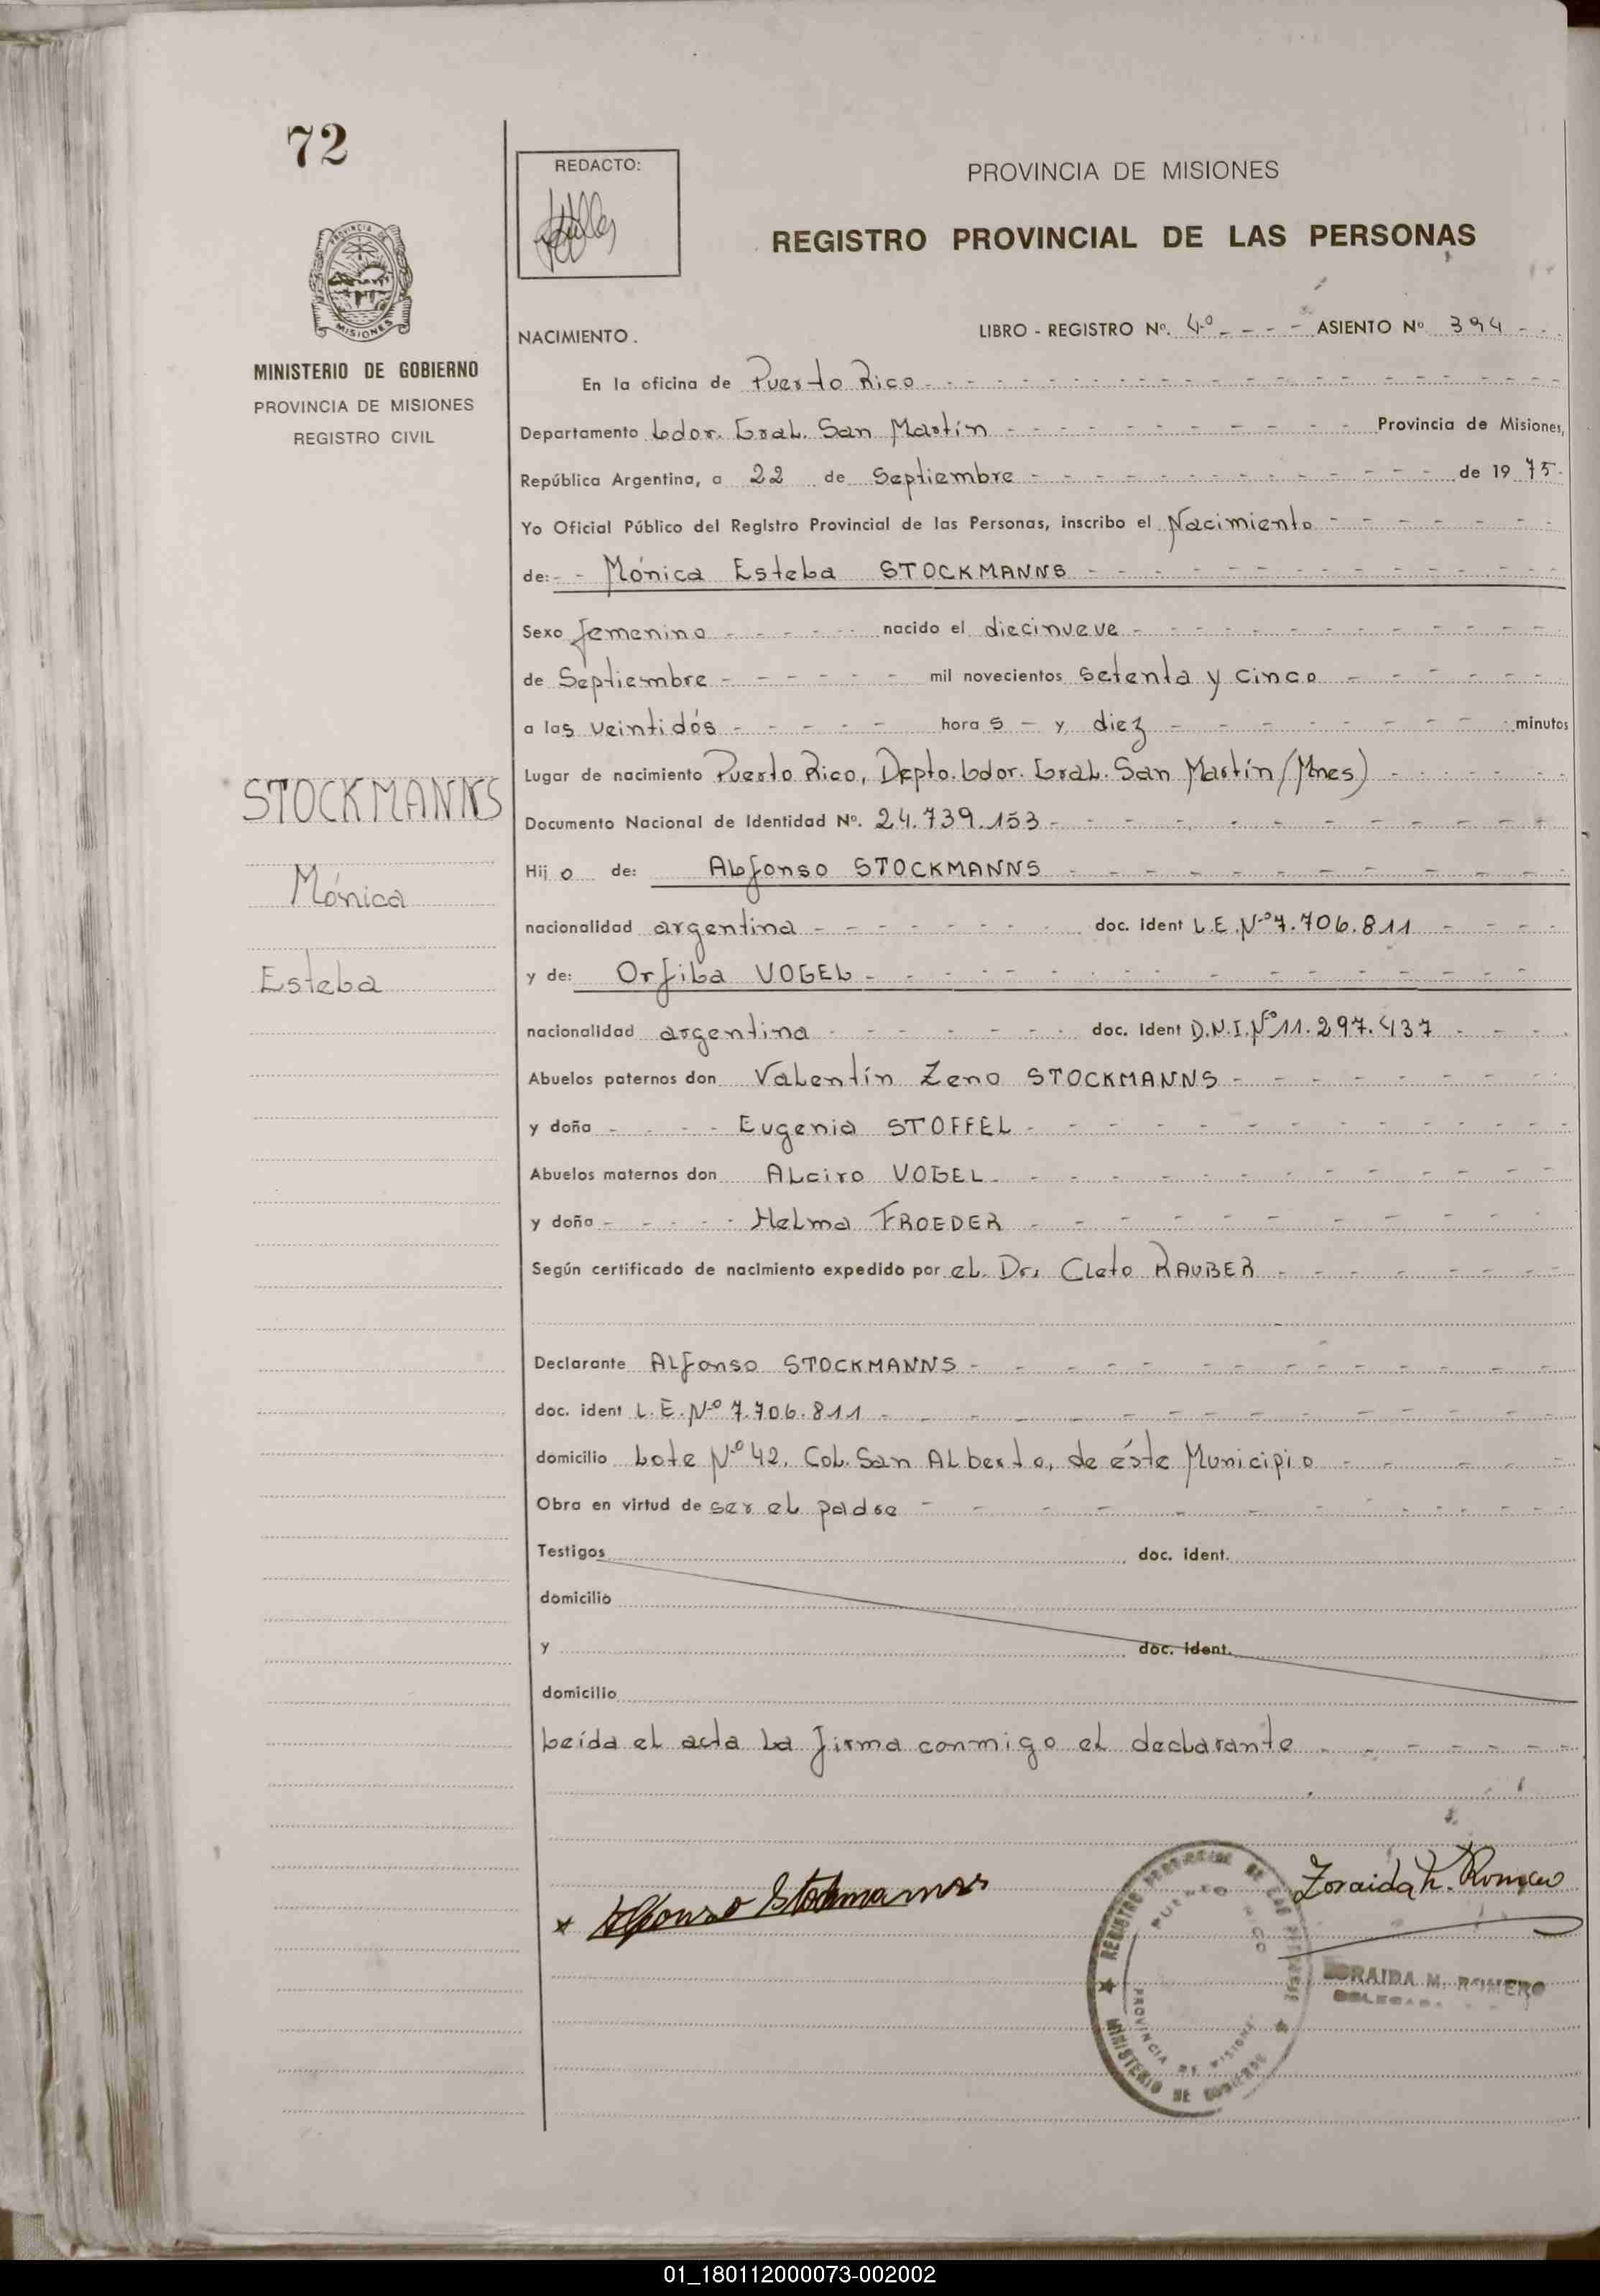 72
REDACTO:
PROVINCIA DE MISIONES
REGISTRO PROVINCIAL DE LAS PERSONAS
PROVINCIA DE
MISIONES
MINISTERIO DE GOBIERNO
PROVINCIA DE MISIONES
REGISTRO CIVIL
NACIMIENTO. LIBRO - REGISTRO Nº. 4º - - - - ASIENTO Nº 394 - -
En la oficina de Puerto Rico
Departamento Ldor. Gral. San Martín Provincia de Misiones,
República Argentina, a 22 de Septiembre de 19 75.
Yo Oficial Público del Registro Provincial de las Personas, inscribo el Nacimiento
de: - - Mónica Estela STOCKMANNS
Sexo femenino nacido el diecinueve
de Septiembre mil novecientos setenta y cinco
a las veintidós hora s - y diez minutos
Lugar de nacimiento Puerto Rico, Depto. Ldor. Gral. San Martín (Mnes)
STOCKMANNS
Documento Nacional de Identidad Nº. 24.739.153
Hij o de: Alfonso STOCKMANNS
Mónica
nacionalidad argentina doc. ident L.E. Nº 7.706.811
y de: Orfila VOGEL
Estela
nacionalidad argentina doc. ident D.N.I. Nº 11.297.437
Abuelos paternos don Valentín Zeno STOCKMANNS
y doña Eugenia STOFFEL
Abuelos maternos don Alciro VOGEL
y doña Helma FROEDER
Según certificado de nacimiento expedido por el Dr. Cleto RAUBER
Declarante Alfonso STOCKMANNS
doc. ident L.E. Nº 7.706.811
domicilio Lote Nº 42, Col. San Alberto, de éste Municipio
Obra en virtud de ser el padre
Testigos doc. ident.
domicilio
y doc. ident.
domicilio
Leída el acta la firma conmigo el declarante
Alfonso Stockmanns
Zoraida M. Romero
REGISTRO PROVINCIAL DE LAS PERSONAS
PUERTO RICO
PROVINCIA DE MISIONES
MINISTERIO DE GOBIERNO
ZORAIDA M. ROMERO
DELEGADA
01_180112000073-002002